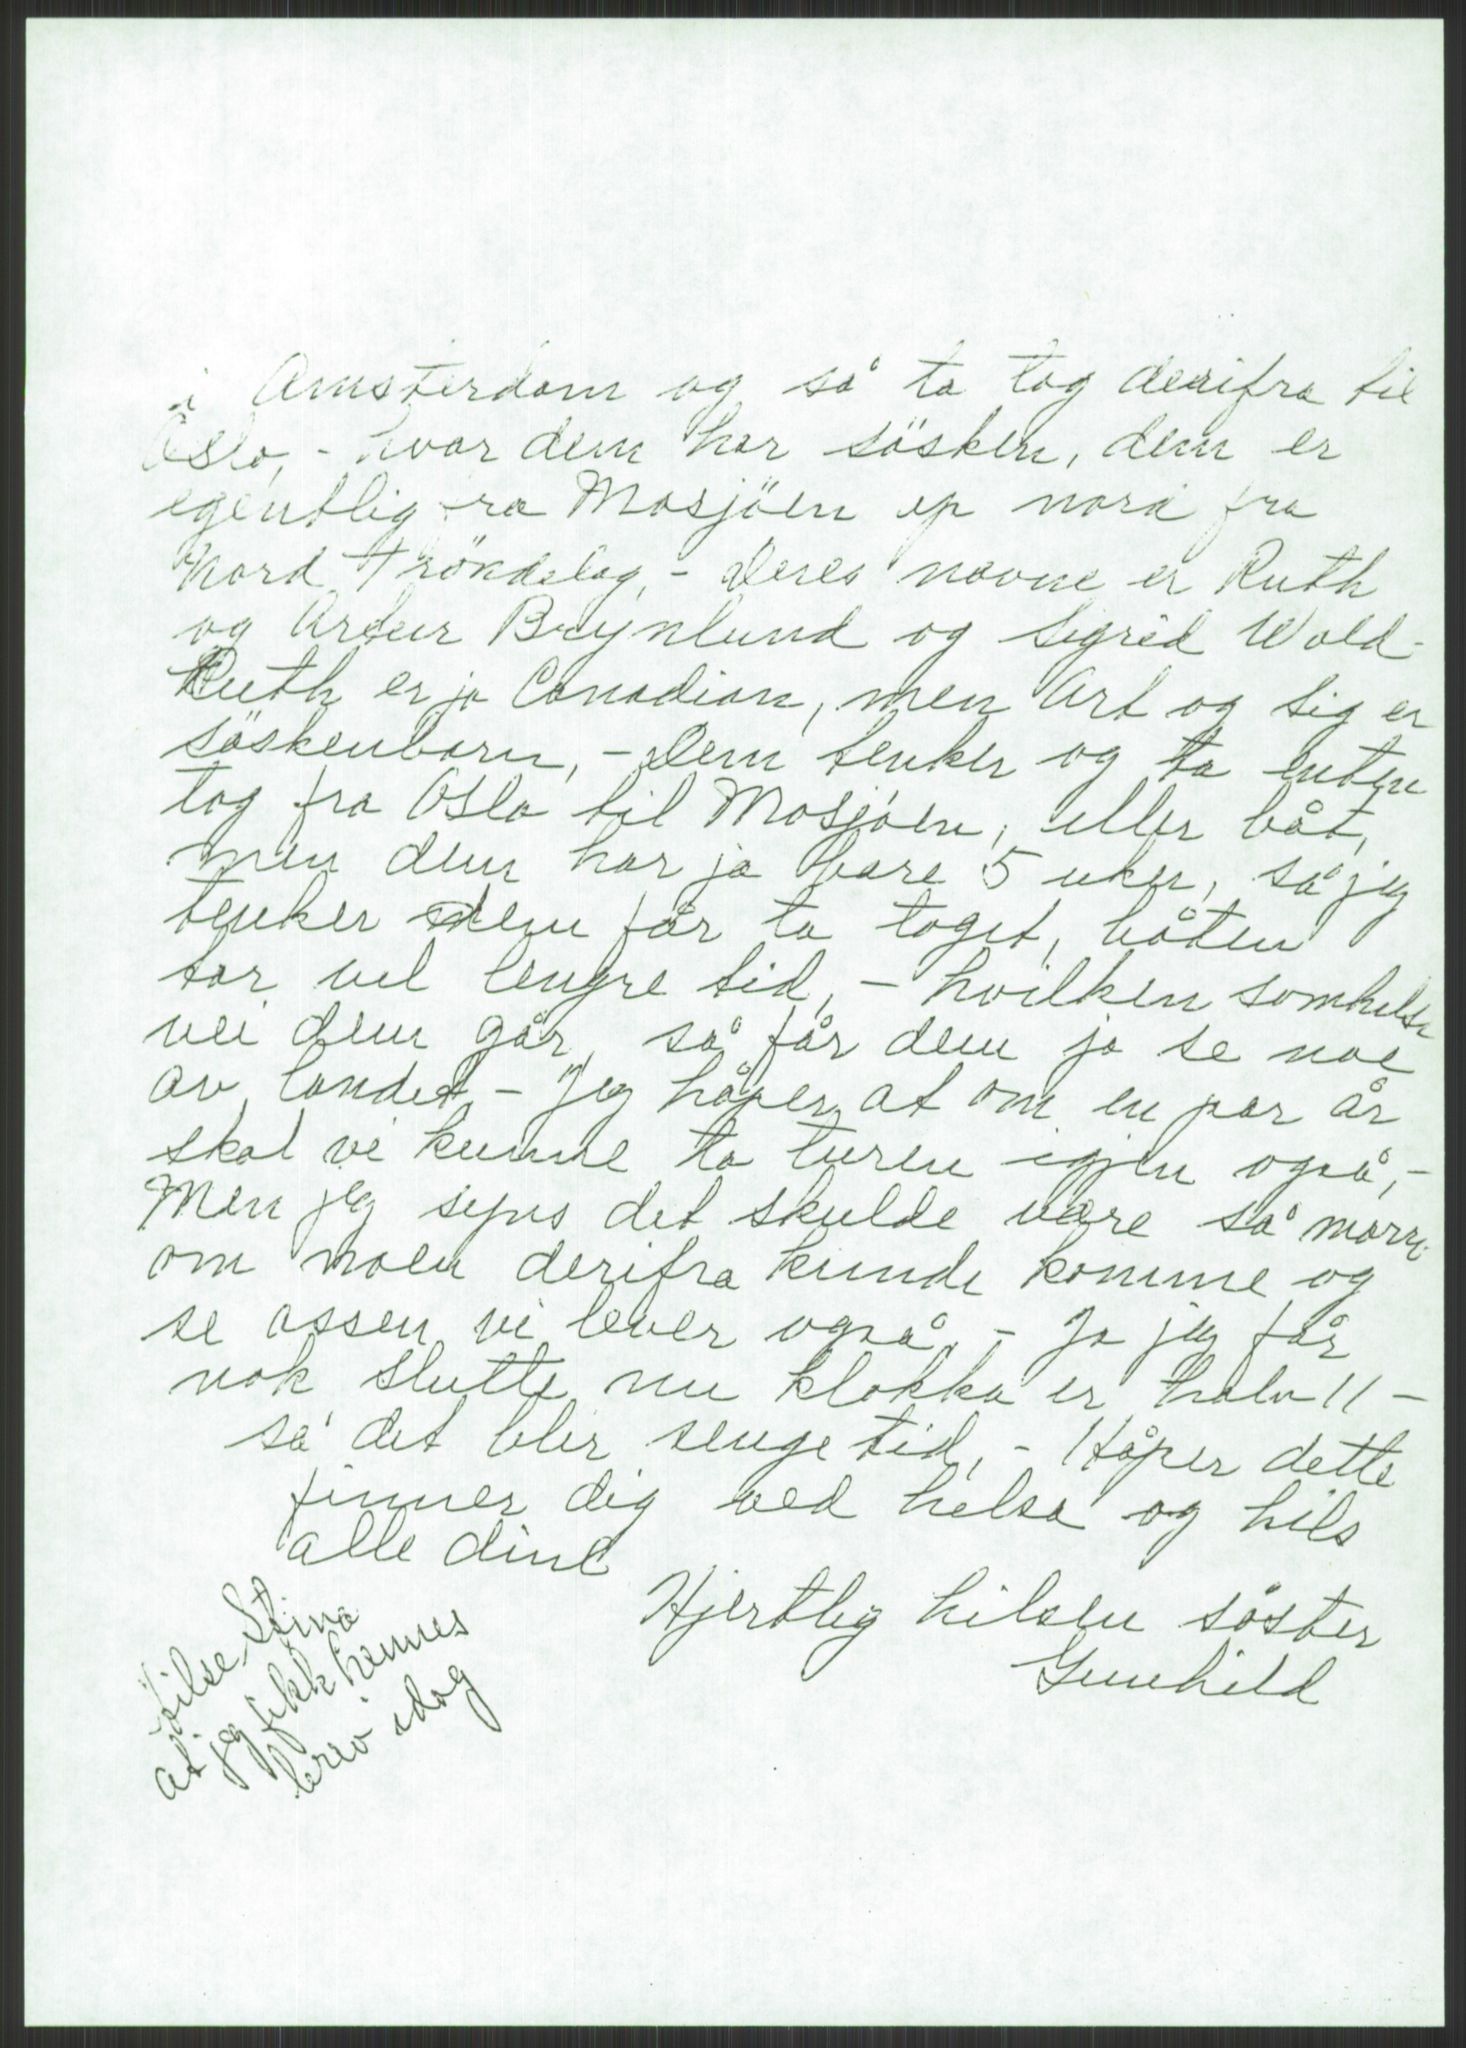 i Amsterdam og så ta tog derifra til
Oslo, - hvor dem har sösken, dem er
egentlig fra Mosjöen op nord fra
Nord Tröndelag, - Deres navne er Ruth
og Artur Brynlund og Sigrid Wold -
Ruth er jo Canadian, men Art og Sig er
söskenbarn, - Dem tenker og ta enten
tog fra Oslo til Mosjöen, eller båt,
men dem har jo bare 5 uker, så jeg
tenker dem får ta toget, båten
tar vel lengre tid, - hvilken somhelst
vei dem går, så får dem jo se noe
av landet - Jeg håper at om en par år
skal vi kunne ta turen igjen også, -
Men jeg syns det skulde være så morr.
om noen derifra kunde komme og
se assen vi lever også, - Ja jeg får
nok slutte nu klokka er halv 11 -
så det blir senge tid, - Håper dette
finner dig ved helsa og hils
alle dine
Hjertlig hilsen söster
Gunhild
Hilse Stina
at jeg fikk hennes
brev idag